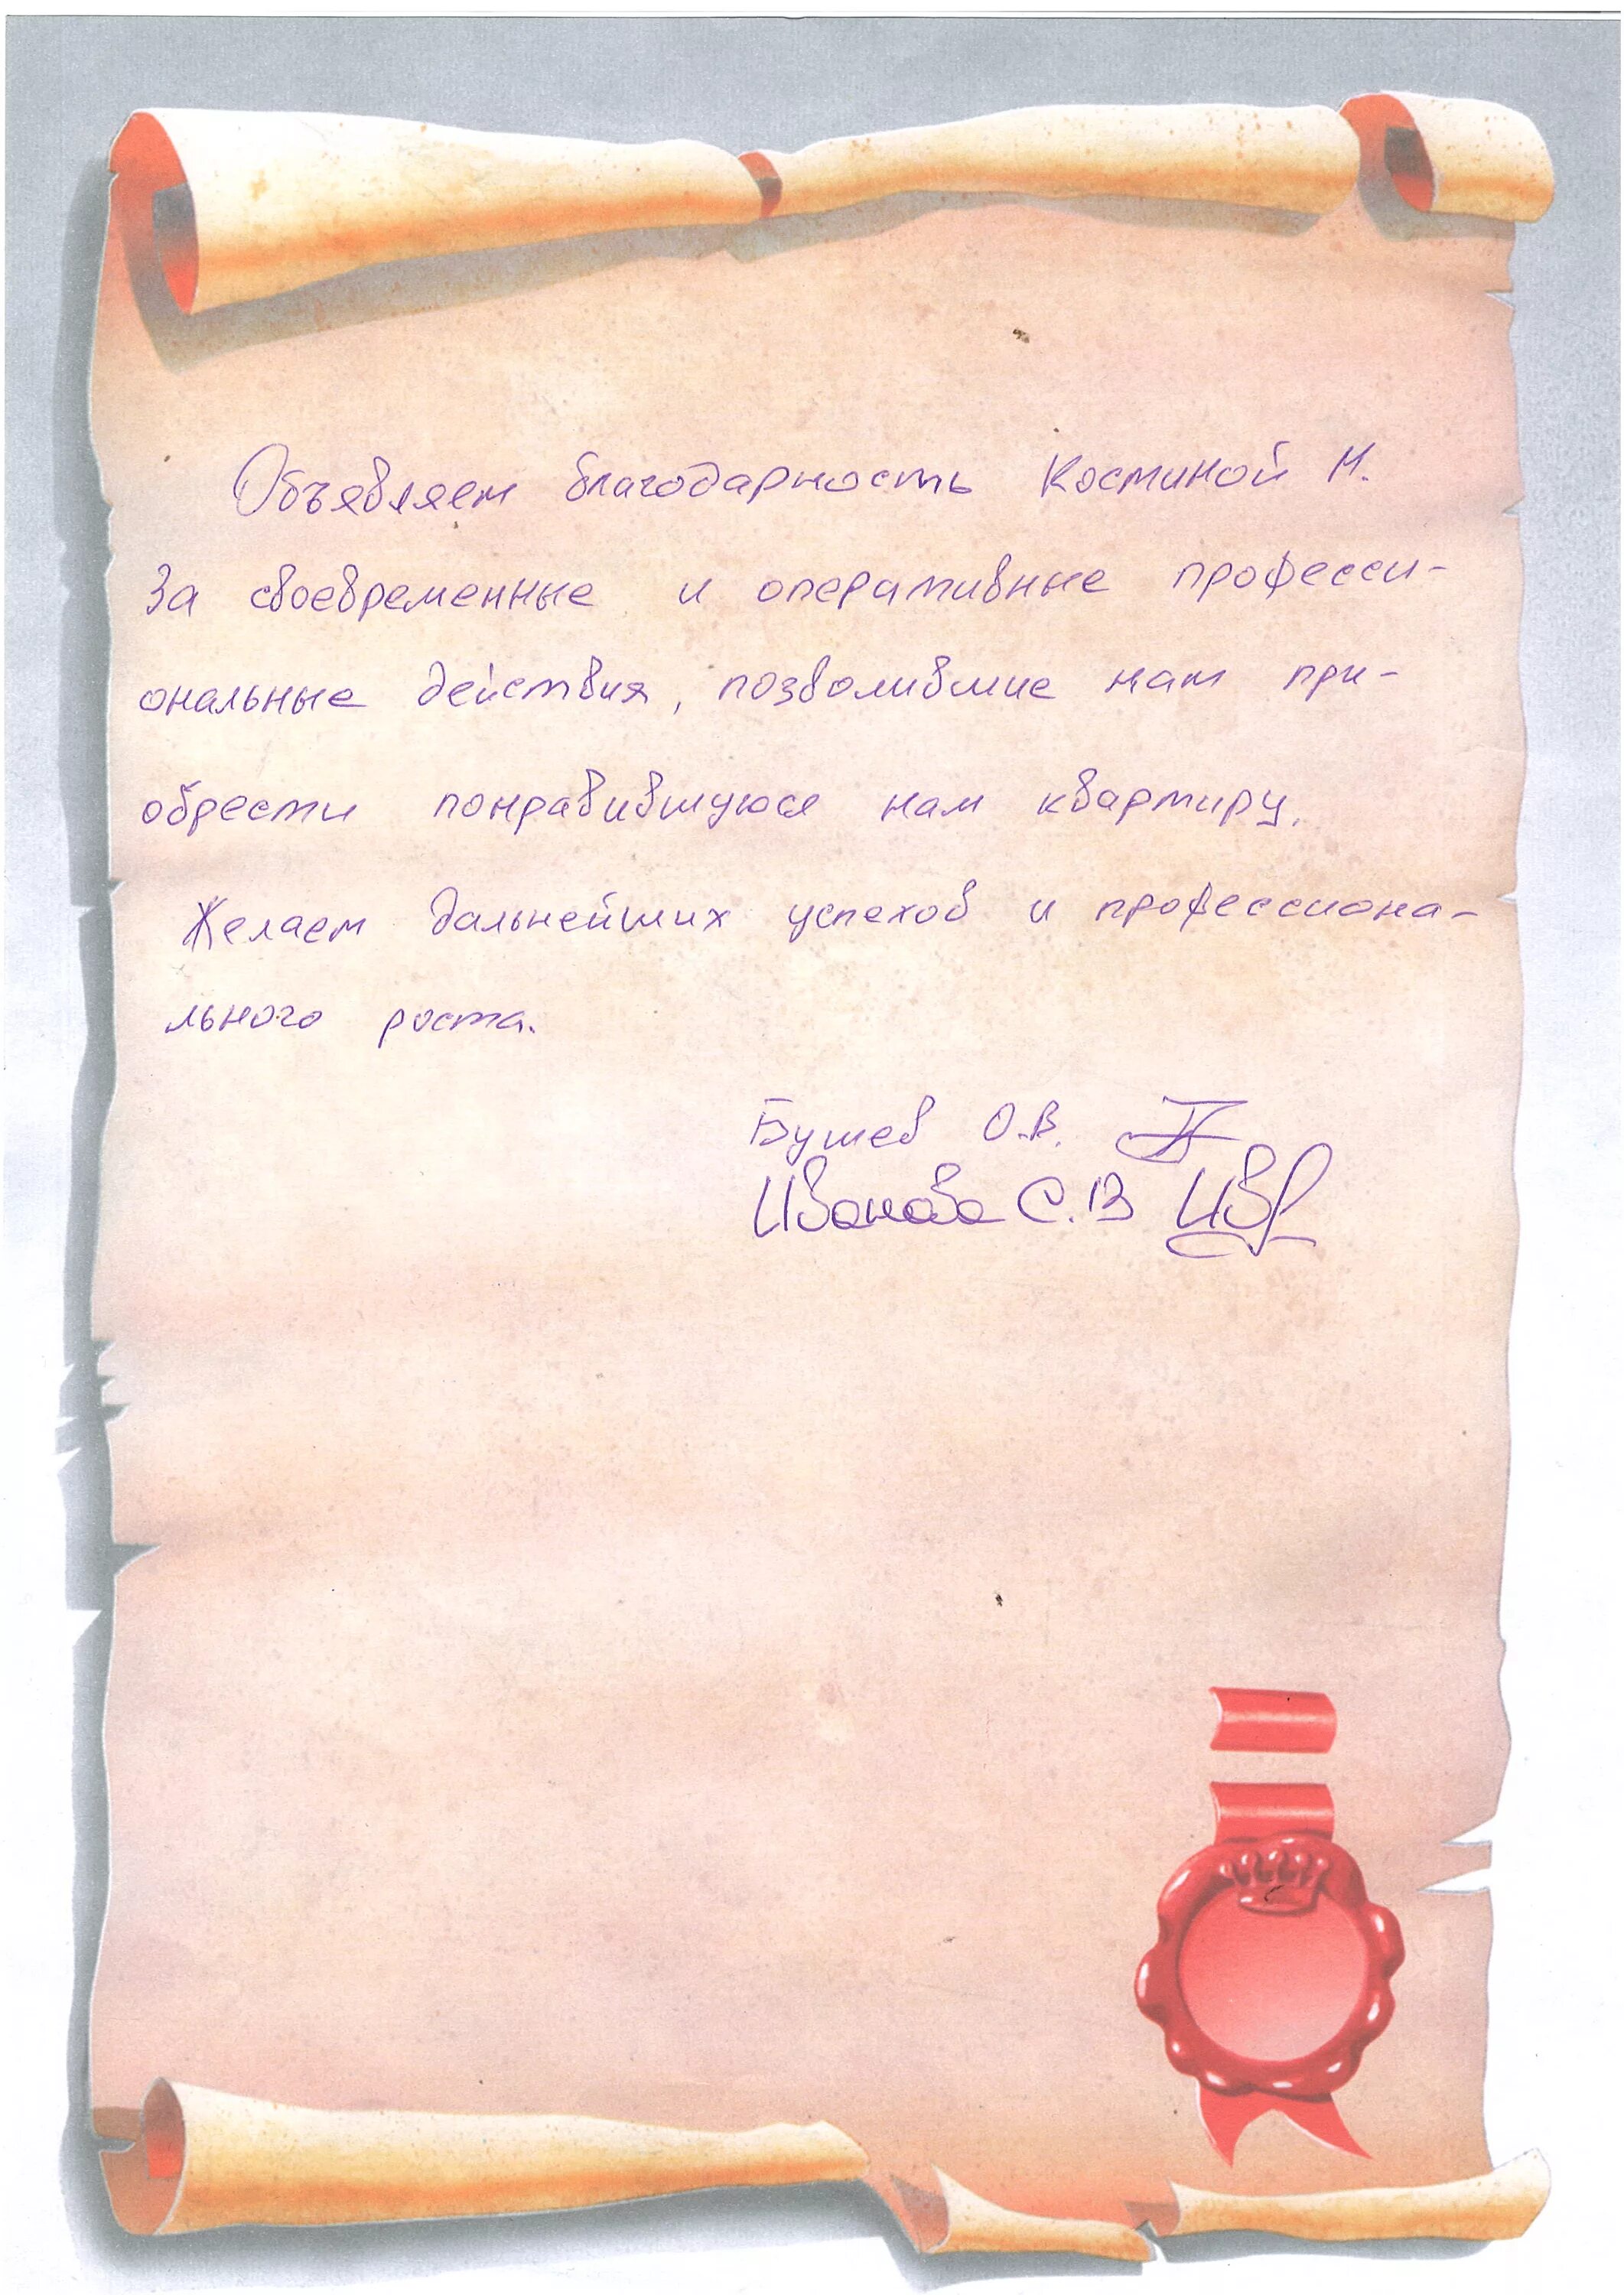 Объявляем благодарность Костиной Н.
За своевременные и оперативные професси-
ональные действия, позволившие нам при-
обрести понравившуюся нам квартиру.
Желаем дальнейших успехов и профессиона-
льного роста.
Бушев О.В.
Иванова С.В